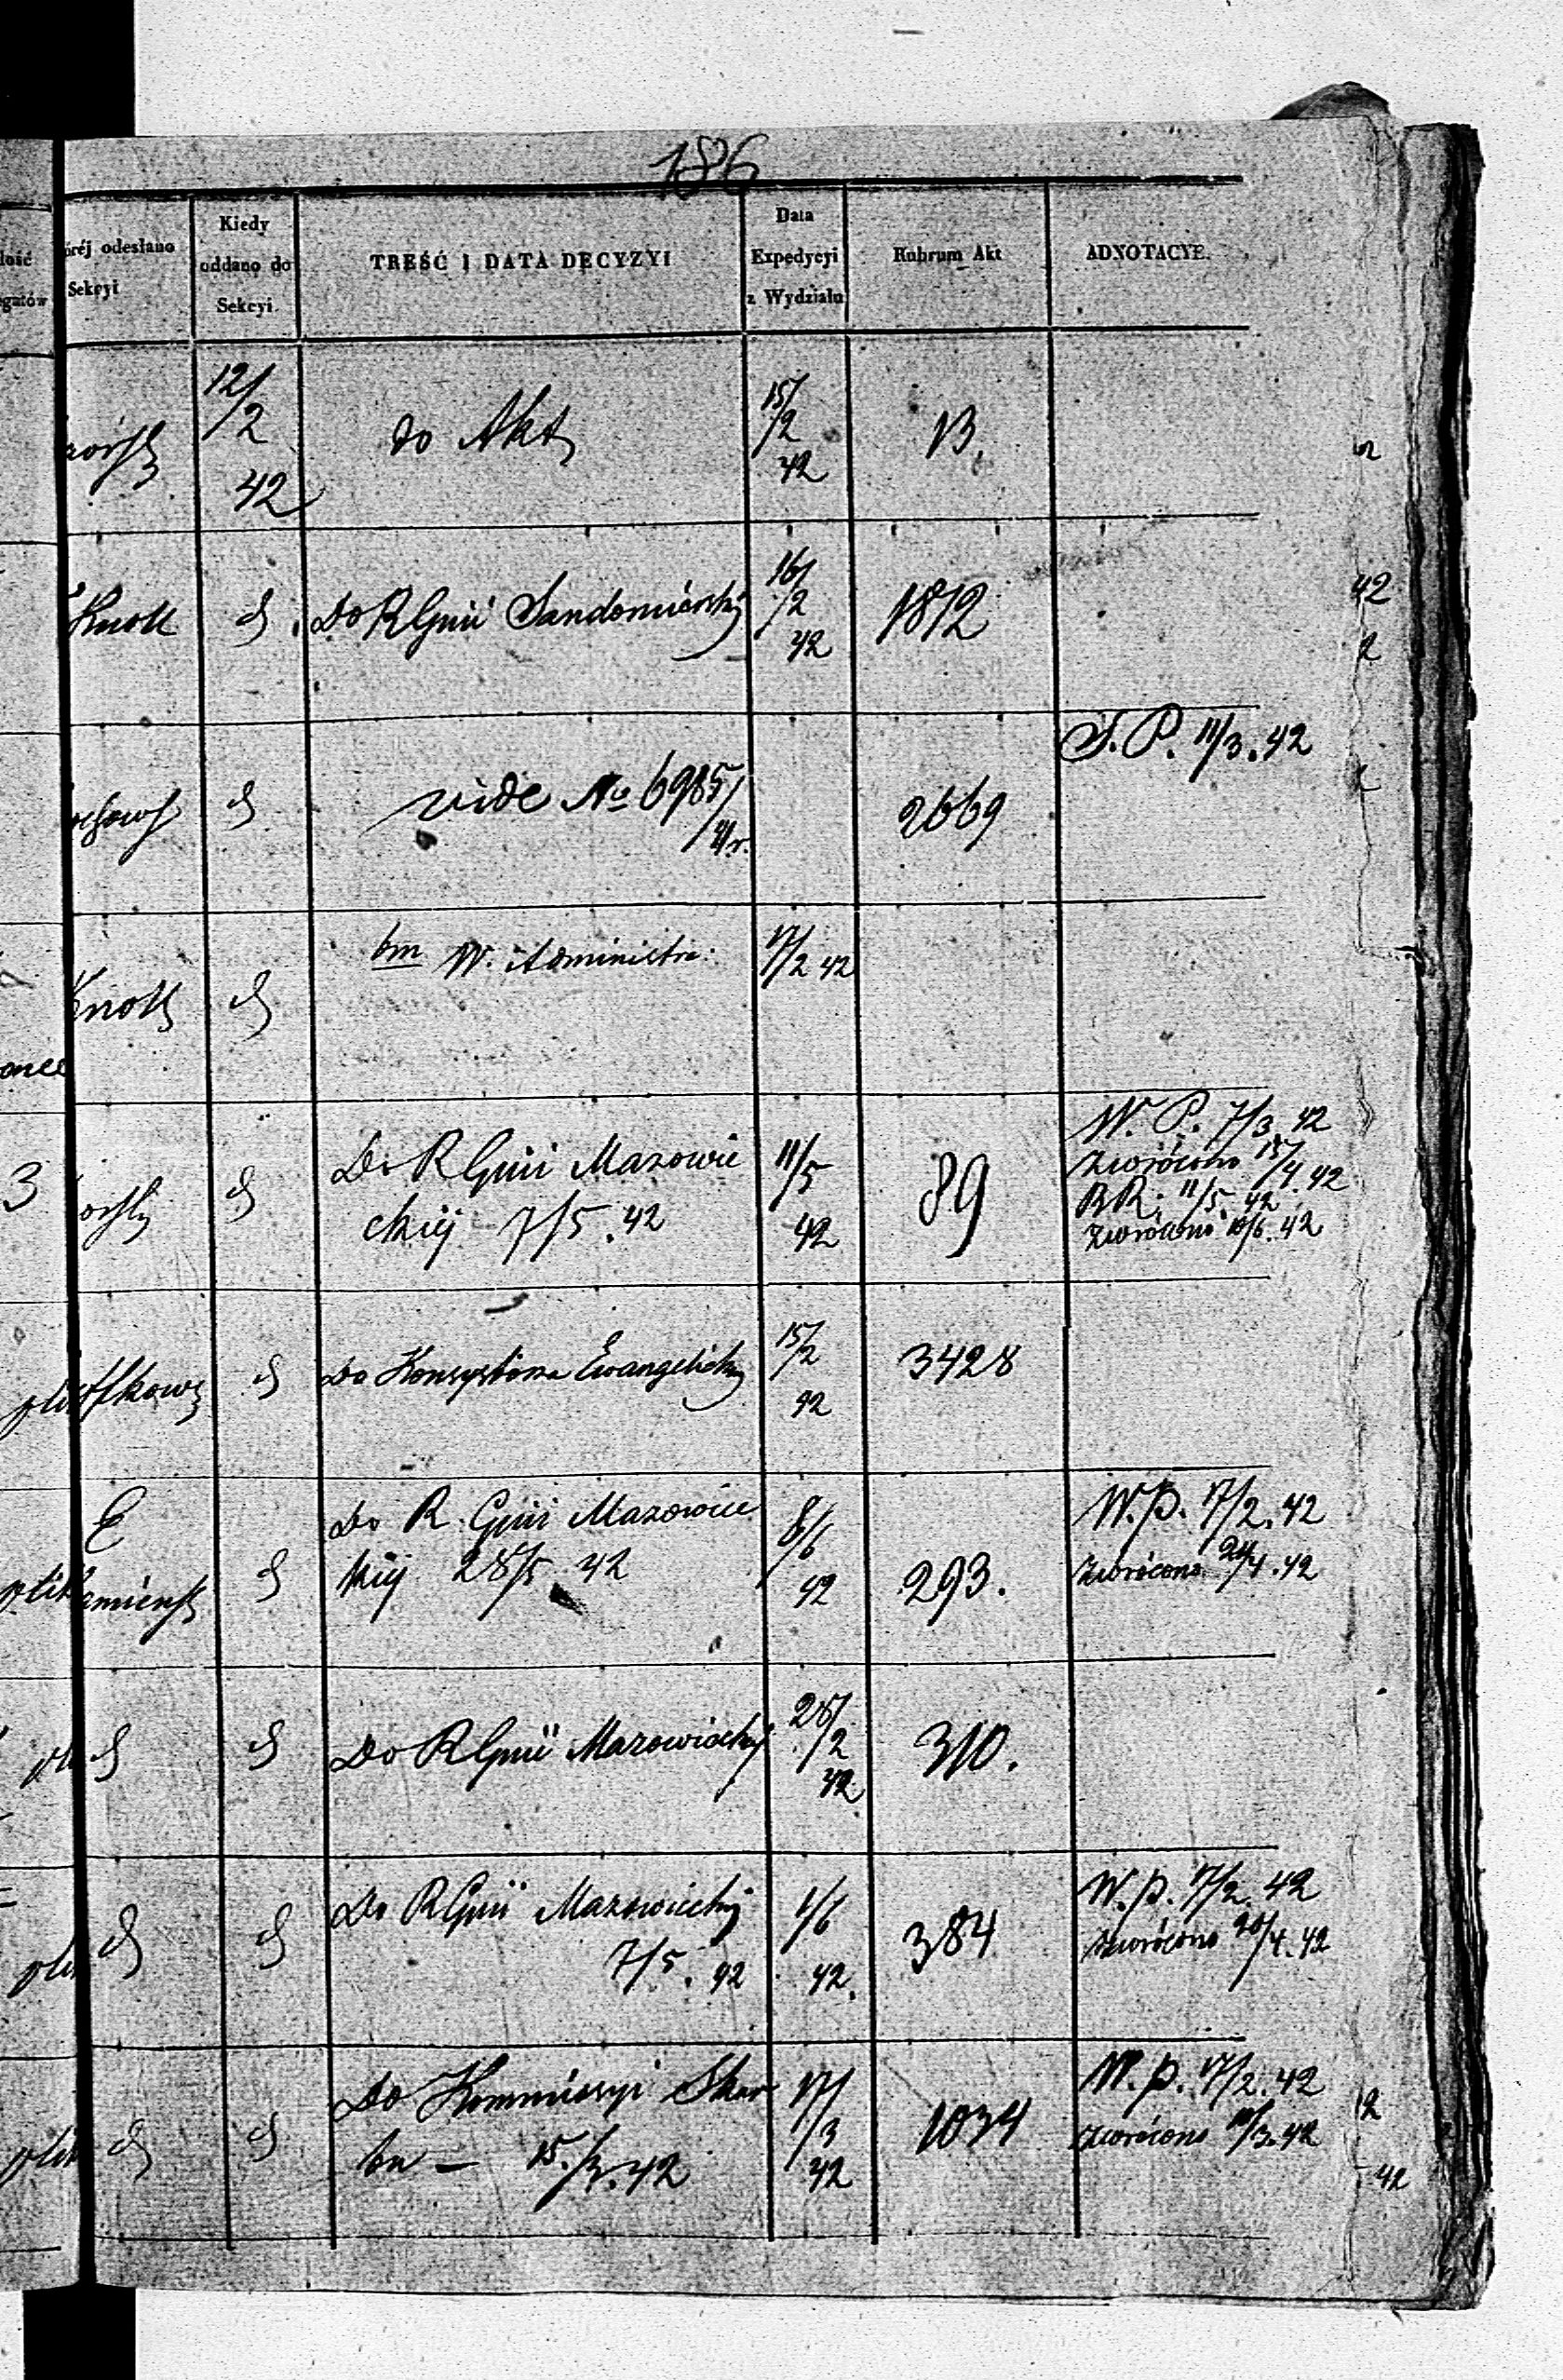 186
órėj odesłano
Sekcyi
Kiedy
oddano do
Sekcyi.
TREŚĆ I DATA DECYZYI
Data
Expedycyi
z Wydziału
Rubrum Akt
ADNOTACYE.
12/2
42
do Akt
15/2
42
13.
Knoll
d
Do RGnii Sandomierskiej
16/2
42
1812
d
vide No 6985/
41 r.
2669
S. P. 11/3.42
Knoll
d
bm W. Administra:
17/2 42
d
Do RGnii Mazowie
ckiej 7/5.42
11/5
42
89
W. P. 7/3 42
Zwrócono 15/4.42
RR. 11/5 42
Zwrócono 10/6.42
d
Do Konsystorza Ewangelickiego
15/2
42
3428
E
Kamieńsk
d
Do R. Gnii Mazowiec
kiej 28/5 42
8/6
42
293.
W.P. 17/2.42
Zwrócono 20/4.42
d
d
Do RGnii Mazowieckiej
28/2
42
310.
d
d
Do RGnii Mazowieckiej
7/5. 42
1/6
42.
384
W.p. 17/2.42
Zwrócono 20/4.42
d
d
Do Kommissyi Skar
bu — 15./3.42
17/3
42
1034
W.p. 17/2.42
Zwrócono 10/3.42